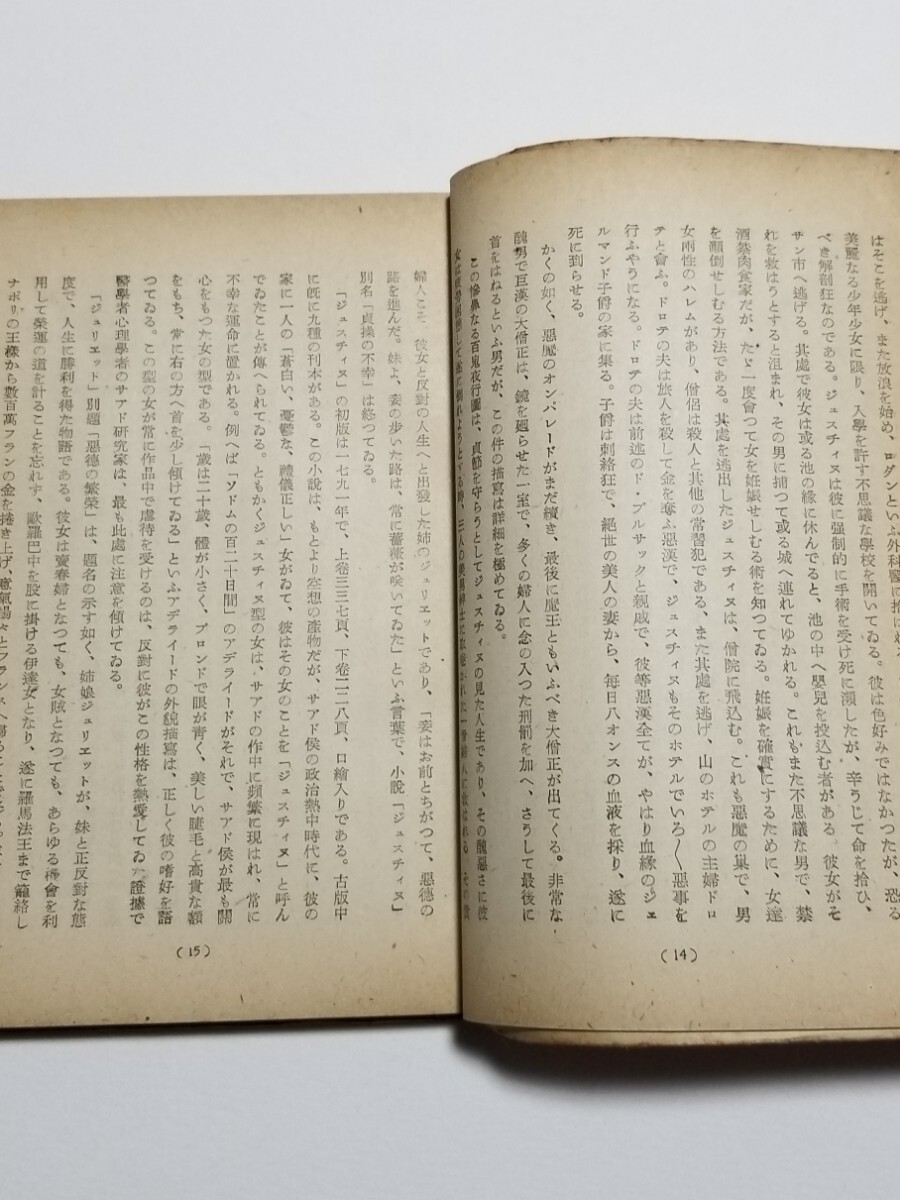 はそこを逃げ、また放浪を始め、ロダンといふ外科醫に拾はれ
美麗なる少年少女に限り、入學を許す不思議な學校を開いてゐる。彼は色好みではなかつたが、恐る
べき解剖狂なのである。ジュスティヌは彼に强制的に手術を受け死に瀕したが、辛うじて命を拾ひ、
サン市へ逃げる。其處で彼女は或る池の緣に休んでると、池の中へ嬰兒を投込む者がある。彼女がそ
れを救はうとすると沮まれ、その男に捕つて或る城へ連れてゆかれる。これもまた不思議な男で、禁
酒祭肉食家だが、たゞ一度會つて女を妊娠せしむる術を知つてゐる。妊娠を確實にするために、女達
を顚倒せしむる方法である。其處を逃出したジュスティヌは、僧院に飛込む。これも惡魔の巢で、男
女兩性のハレムがあり、僧侶は殺人と其他の常習犯である、また其處を逃げ、山のホテルの主婦ドロ
テと會ふ。ドロテの夫は旅人を殺して金を奪ふ惡漢で、ジュスティヌもそのホテルでいろ〱惡事を
行ふやうになる。ドロテの夫は前述のド・ブルサックと親戚で、彼等惡漢全てが、やはり血緣のジェ
ルマンド子爵の家に集る。子爵は刺絡狂で、絕世の美人の妻から、每日八オンスの血液を採り、遂に
死に到らせる。
かくの如く、惡魔のオンパレードがまだ續き、最後に魔王ともいふべき大僧正が出てくる。非常な
醜男で巨漢の大僧正は、鏡を廻らせた一室で、多くの婦人に念の入つた刑罰を加へ、さうして最後に
首をはねるといふ男だが、この件の描寫は詳細を極めてゐる。
この慘鼻なる百鬼夜行圖は、貞節を守らうとしてジュスティヌの見た人生であり、その醜惡さに彼
(14)
婦人こそ、彼女と反對の人生へと出發した姉のジュリエットであり、「妾はお前とちがつて、惡德の
路を進んだ。妹よ、妾の歩いた路は、常に薔薇が咲いてゐた」といふ言葉で、小說「ジュスティヌ」
別名「貞操の不幸」は終つてゐる。
「ジュスティヌ」の初版は一七九一年で、上卷三三七頁、下卷二二八頁、口繪入りである。古版中
に旣に九種の刊本がある。この小說は、もとより空想の產物だが、サアド侯の政治熱中時代に、彼の
家に一人の「蒼白い、憂鬱な、禮儀正しい」女がゐて、彼はその女のことを「ジュスティヌ」と呼ん
でゐたことが傳へられてゐる。ともかくジュスティヌ型の女は、サアドの作中に頻繁に現はれ、常に
不幸な運命に置かれる。例へば「ソドムの百二十日間」のアデライードがそれで、サアド侯が最も關
心をもつた女の型である。「歲は二十歲、體が小さく、ブロンドで眼が靑く、美しい睫毛と高貴な額
をもち、常に右の方へ首を少し傾けてゐる」といふアデライードの外貌描寫は、正しく彼の嗜好を語
つてゐる。この型の女が常に作品中で虐待を受けるのは、反對に彼がこの性格を熱愛してゐた證據で
醫學者心理學者のサアド硏究家は、最も此處に注意を傾けてゐる。
「ジュリエット」別題「惡德の繁榮」は、題名の示す如く、姉娘ジュリエットが、妹と正反對な態
度で、人生に勝利を得た物語である。彼女は賣春婦となつても、女賊となつても、あらゆる機會を利
用して榮運の道を計ることを忘れず、歐羅巴中を股に掛ける伊達女となり、遂に羅馬法王まで籠絡し
ナポリの王樣から數百萬フランの金を捲き上げ、意氣揚々とフランスへ
(15)